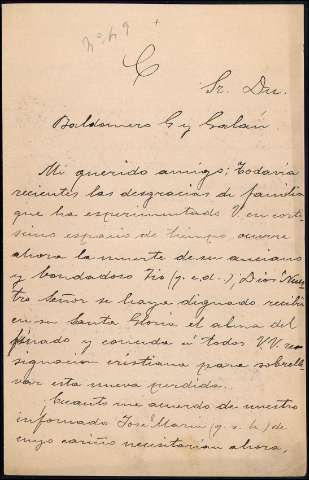 Nº 69 +
C
Sr. Dn.
Baldomero G y Galán.
Mi querido amigo; Todavía
recientes las desgracias de familia
que ha experimentado V. en cortí-
simo espacio de tiempo, ocurre
ahora la muerte de su anciano
y bondadoso Tio (q. e. d.), Dios Nues
tro Señor se haya dignado recibir
en su Santa Gloria el alma del
finado y conceda á todos V.V. re
signación cristiana para sobrelle
var esta nueva perdida.
Cuanto me acuerdo de nuestro
informado José Maria (q. s. h.) de
cuyo cariño necesitarian ahora,